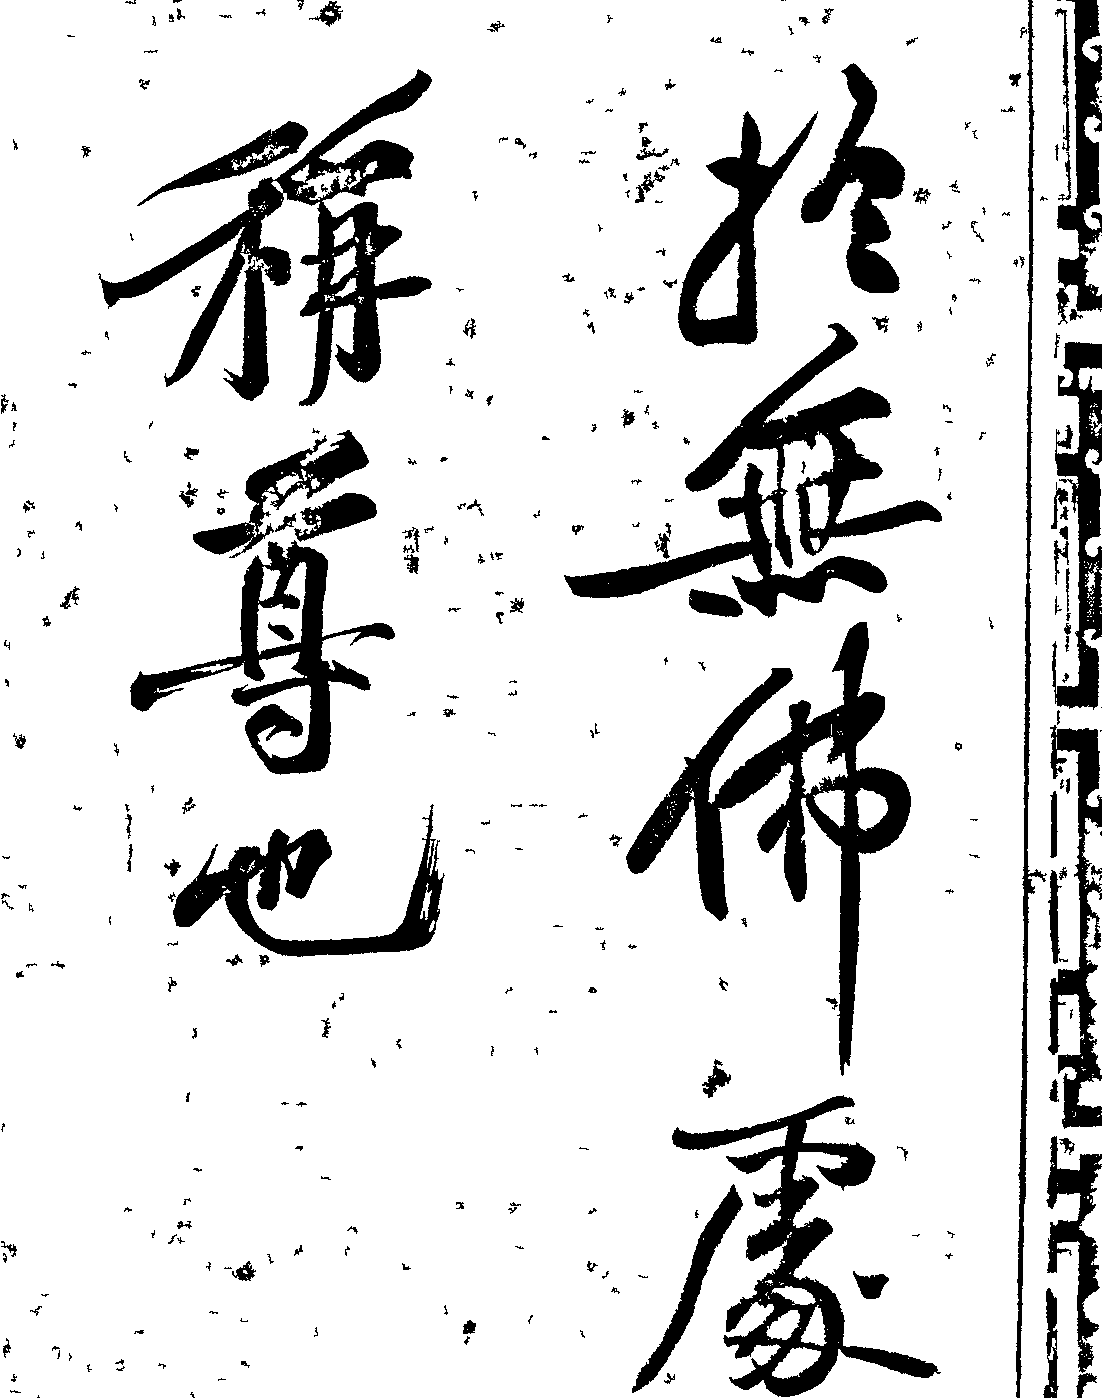 於無佛處
稱尊也